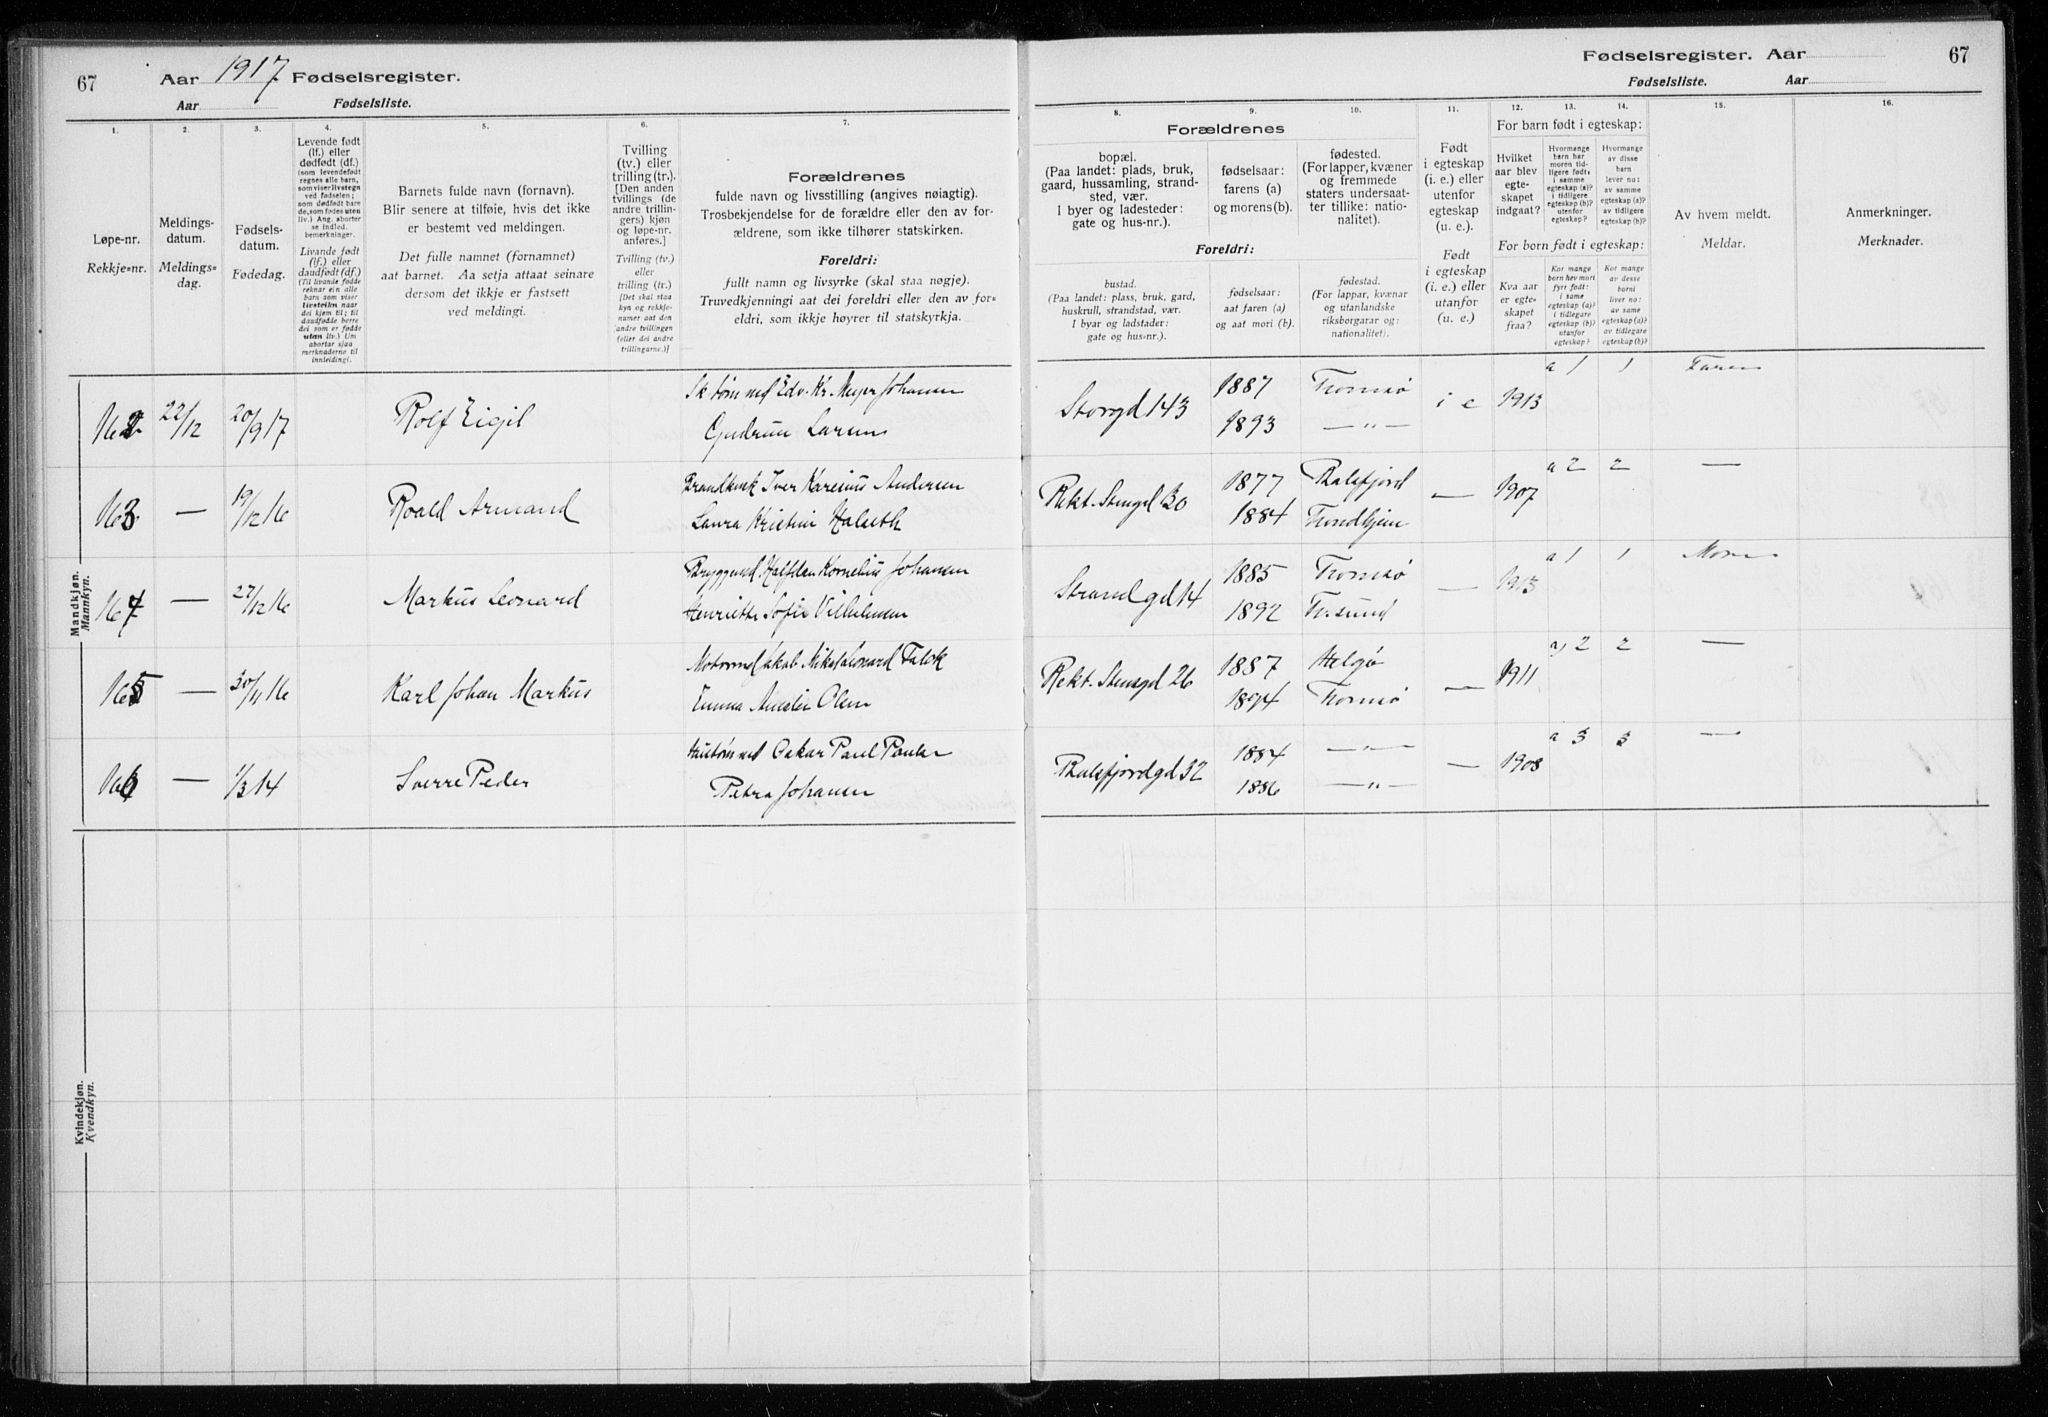 67 Aar 1917 Fødselsregister.
Aar Fødselsliste.
1.
Løpe-nr.
Rekkje=nr.
2.
Meldings-
datum.
Meldings=
dag.
3.
Fødsels-
datum.
Fødedag.
4.
Levende født
(lf.) eller
dødfødt (df.)
(som levendefødt
regnes alle barn,
som viser livstegn
ved fødselen;
som dødfødt bare
de, som fødes uten
liv.) Ang. aborter
se indled.
bemerkninger.
Livande født
(lf.) eller
daudfødt (df.)
(Til livande fødde
reknar ein alle
barn som viser
livsteikn naar
dei kjem til; til
daudfødde berre
dei som er fødde
utan liv.) Um
abortar sjaa
merknaderne til
innleidingi.
5.
Barnets fulde navn (fornavn).
Blir senere at tilføie, hvis det ikke
er bestemt ved meldingen.
Det fulle namnet (fornamnet)
aat barnet. Aa setja attaat seinare
dersom det ikkje er fastsett
ved meldingi.
6.
Tvilling
(tv.) eller
trilling (tr.).
[Den anden
tvillings (de
andre trillin-
gers) kjøn
og løpe-nr.
anføres.]
Tvilling (tv.)
eller
trilling (tr.)
[Det skal staa
kyn og rekkje-
namer aat den
andre tvillingen
(eller dei andre
trillingarne.)]
7.
Forældrenes
fulde navn og livsstilling (angives nøiagtig).
Trosbekjendelse for de forældre eller den av for-
ældrene, som ikke tilhører statskirken.
Foreldri:
fullt namn og livsyrke (skal staa nøgje).
Truvedkjenningi aat dei foreldri eller den av for=
eldri, som ikkje høyrer til statskyrkja.
Mandkjøn.
Mannkyn.
162 22/12 20/9 17 Rolf Eigil
Edv. Kr. Meyer Johansen
Gudrun Larsen
163 — 19/12 16 Roald Armand
Iver Karesius Andersen
Laura Kristine
164 — 27/12 16 Markus Leonard
Halfdan Kornelius Johansen
Henriette Sofie Vilhelmsen
165 — 30/11 16 Karl Johan Markus
Jakob Leonard Falck
Emma Amalie Olsen
166 — 1/3 14 Sverre Peder
Oskar Paul Paulsen
Petra Johansen
Kvindekjøn.
Kvendkyn.
Fødselsregister. Aar 67
Fødselsliste. Aar
Forældrenes
8.
bopæl.
(Paa landet: plads, bruk,
gaard, hussamling, strand-
sted, vær.
I byer og ladesteder:
gate og hus-nr.).
Foreldri:
bustad.
(Paa landet: plass, bruk, gard,
huskrull, strandstad, vær.
I byar og ladstader:
gate og hus=nr.).
9.
fødselsaar:
farens (a)
og morens (b).
fødselsaar:
aat faren (a)
og aat mori (b).
10.
fødested.
(For lapper, kvæner
og fremmede
staters undersaat-
ter tillike: natio-
nalitet).
fødestad.
(For lappar, kvænar
og utanlandske
riksborgarar og:
nationalitet).
11.
Født
i egteskap
(i. e.) eller
utenfor
egteskap
(u. e.).
Født
i egteskap
(i. e.) eller
utanfor
(u. e.)
For barn født i egteskap:
12.
Hvilket
aar blev
egte-
skapet
indgaat?
13.
Hvormange
barn har
moren tid-
ligere født,
i samme
egteskap (a)?
i tidligere
egteskap (b)?
utenfor
egteskap?
14.
Hvormange
av disse
barn
lever nu:
av samme
egteskap (a)?
av tidligere
egteskap (b)?
For born født i egteskap:
Kva aar
er egte-
skapet
fraa?
Kor mange
born hev mori
fyrr født:
i same
egteskap (a)?
i tidlegare
egteskap (b)?
utanfor
egteskap?
Kor mange
av desse
borni
liver no:
av same
egteskap (a)?
av tidlegare
egteskap (b)?
15.
Av hvem meldt.
Meldar.
16.
Anmerkninger.
Merknader.
Storgd 143 1887 Tromsø i e 1913 a 1 1 Faren
1893 —"—
Rekt. Stensgd 30 1877 Balsfjord — 1907 a 2 2 —
1884 Trondhjem
Strandgd 14 1885 Tromsø — 1913 a 1 1 Moren
1892
Rekt. Stensgd 26 1887 Helgø — 1911 a 2 2 —
1894 Tromsø
Balsfjordgd 32 1884 —"— — 1908 a 3 3 —
1886 —"—